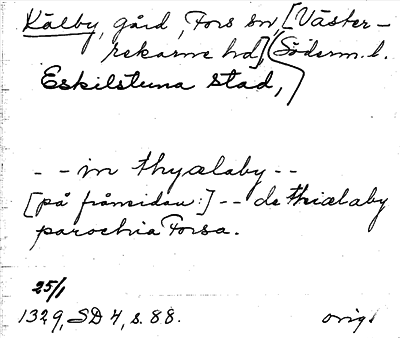 Kälby, gård, Fors sn, [Väster-
rekarne hd], Söderm. l.
Eskilstuna stad,
- - in thyælaby - -
[på framsidan:] - - de thiælaby
parochia Forsa.
25/1
1329, SD 4, s. 88.
orig.